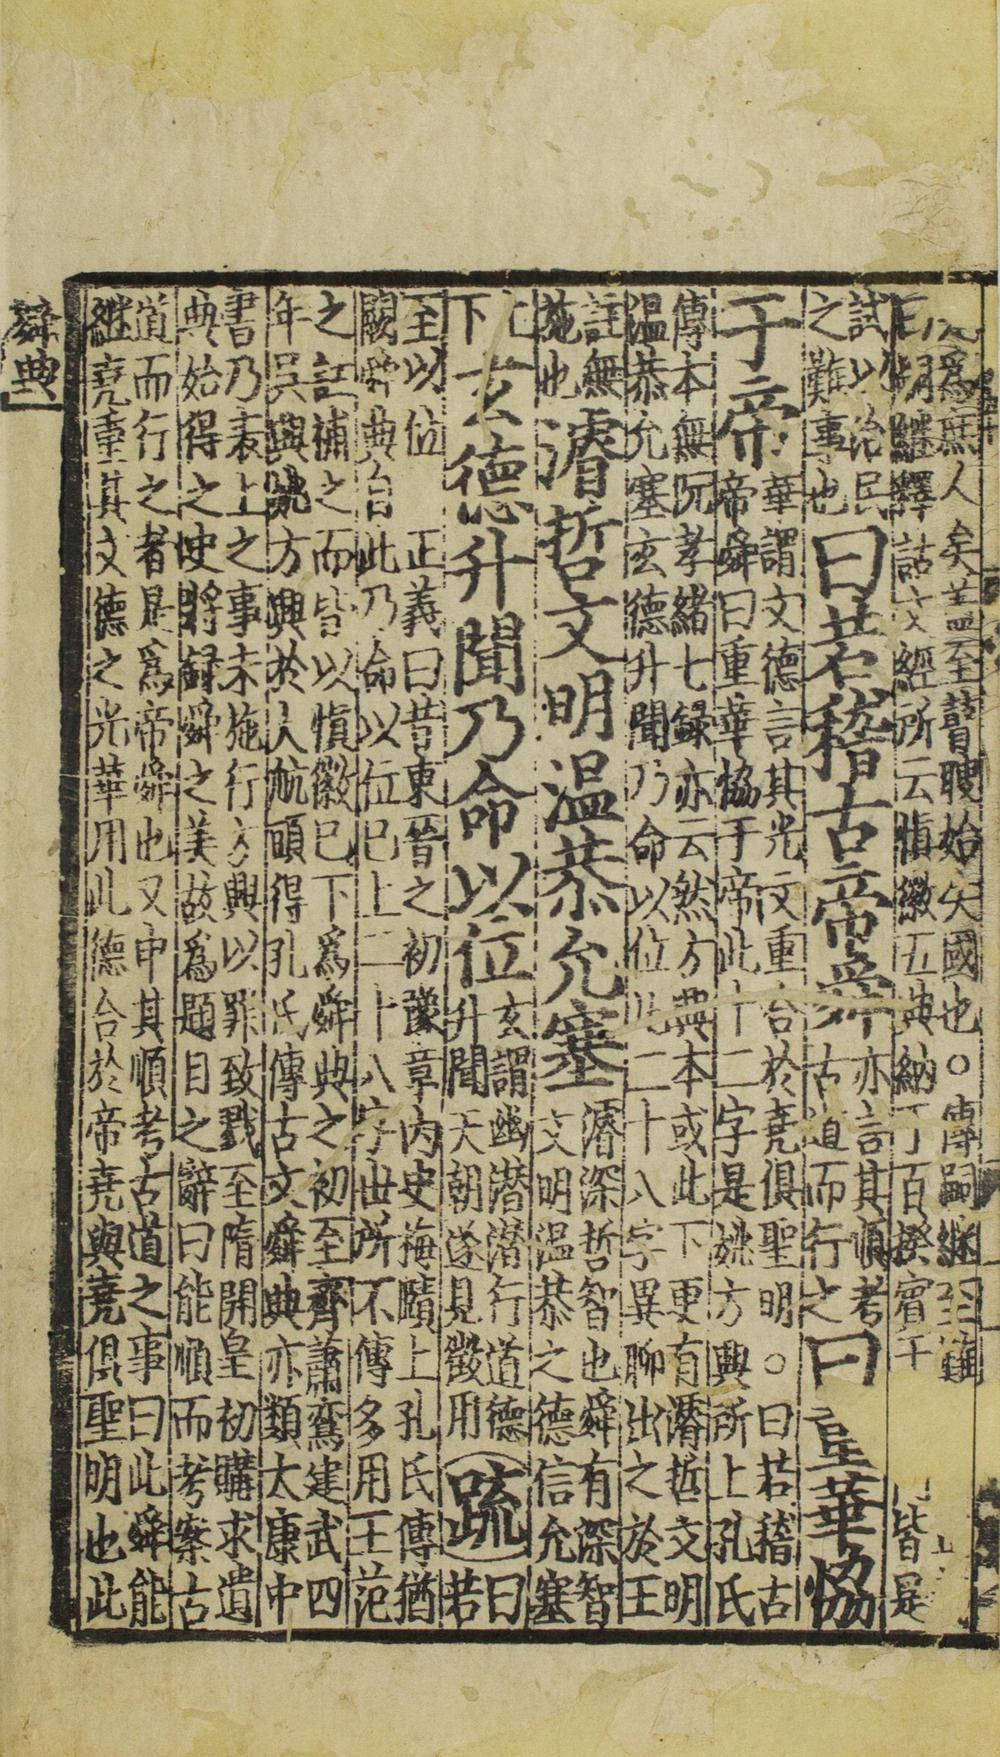 爲庶人矣蓋至瞽瞍始失國也○傳嗣繼至難
繼釋詁文經所云愼徽五典納于百揆賓于
皆是
試以治民
之難事也
曰若稽古帝舜
亦言其順考
古道而行之
曰重華協
于帝
華謂文德言其光文重合於堯俱聖明○曰若稽古
帝舜曰重華協于帝此十二字是姚方興所上孔氏
傳本無阮孝緒七録亦云然方興本或此下更有濬哲文明
温恭允塞玄德升聞乃命以位此二十八字異聊出之於王
註無
施也
濬哲文明温恭允塞
濬深哲智也舜有深智
文明温恭之德信允塞
上
下
玄德升聞乃命以位
玄謂幽潜潜行道德
升聞天朝遂見徵用
疏
曰
若
至以位 正義曰昔東晉之初豫章内史梅賾上孔氏傳猶
闕舜典自此乃命以位已上二十八字世所不傳多用王范
之註補之而皆以愼徽已下爲舜典之初至齊蕭鸞建武四
年吳興姚方興於大航頭得孔氏傳古文舜典亦類太康中
書乃表上之事未施行方興以罪致戮至隋開皇初購求遺
典始得之史將録舜之美故爲題目之辭曰能順而考案古
道而行之者是爲帝舜也又申其順考古道之事曰此舜能
繼堯重其文德之光華用此德合於帝堯與堯俱聖明也此
舜典